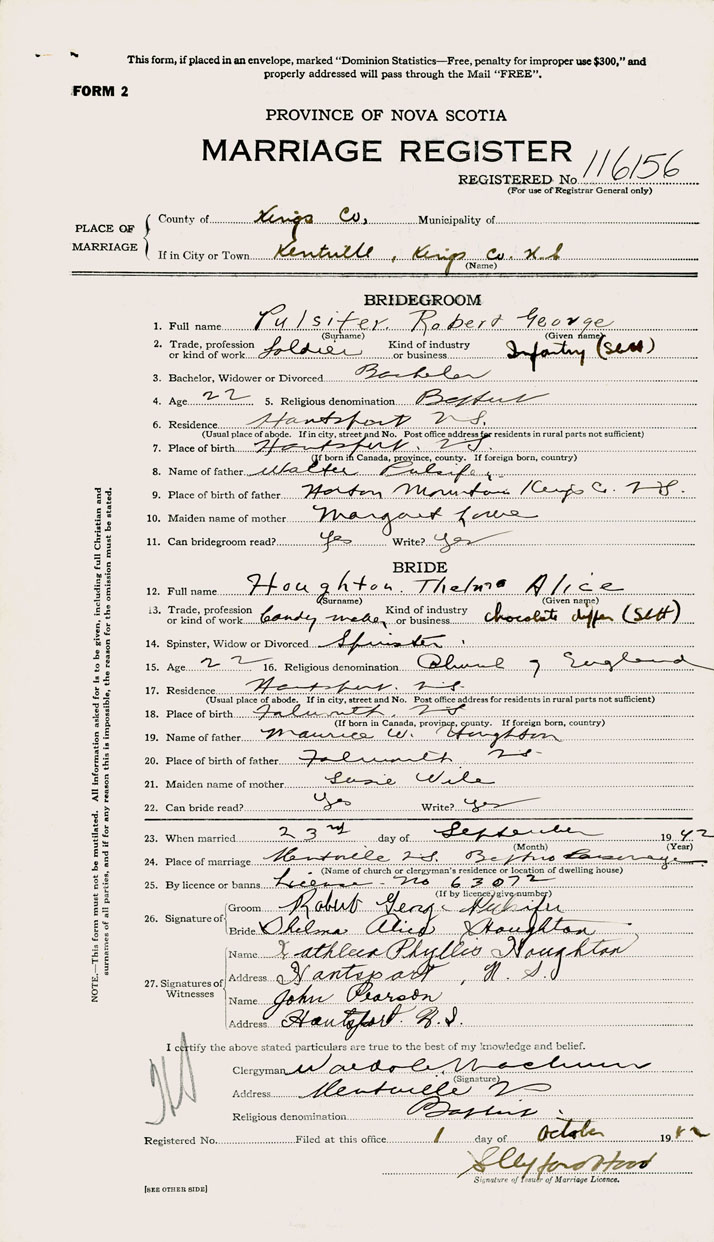 This form, if placed in an envelope, marked "Dominion Statistics—Free, penalty for improper use $300," and
properly addressed will pass through the Mail "FREE".
FORM 2
PROVINCE OF NOVA SCOTIA
MARRIAGE REGISTER
REGISTERED No. 116156
(For use of Registrar General only)
PLACE OF MARRIAGE
County of Kings Co, Municipality of
If in City or Town Kentville, Kings Co. N.S
(Name)
BRIDEGROOM
1. Full name Pulsifer. Robert George
(Surname) (Given name)
2. Trade, profession or kind of work Soldier Kind of industry or business Infantry
3. Bachelor, Widower or Divorced Bachelor
4. Age 22 5. Religious denomination Baptist
6. Residence Hantsport N.S.
(Usual place of abode. If in city, street and No. Post office address for residents in rural parts not sufficient)
7. Place of birth Hantsport. N.S.
(If born in Canada, province, county. If foreign born, country)
8. Name of father Walter Pulsifer
9. Place of birth of father Horton Mountain Kings Co. N.S.
10. Maiden name of mother Margaret Lowe
11. Can bridegroom read? Yes Write? Yes
BRIDE
12. Full name Houghton. Thelma Alice
(Surname) (Given name)
13. Trade, profession or kind of work Candy maker Kind of industry or business chocolate dipper
14. Spinster, Widow or Divorced Spinster.
15. Age 22 16. Religious denomination Church of England
17. Residence Hantsport. N.S.
(Usual place of abode. If in city, street and No. Post office address for residents in rural parts not sufficient)
18. Place of birth Falmouth N.S.
(If born in Canada, province, county. If foreign born, country)
19. Name of father Maurice W. Houghton
20. Place of birth of father Falmouth N.S.
21. Maiden name of mother Susie Wile
22. Can bride read? Yes Write? Yes
23. When married 23rd day of September 1942
(Month) (Year)
24. Place of marriage Kentville N.S. Baptist Parsonage
(Name of church or clergyman's residence or location of dwelling house)
25. By licence or banns License - No 63072
(If by licence, give number)
26. Signature of Groom Robert George Pulsifer
Bride Thelma Alice Houghton
27. Signatures of Witnesses
Name Kathleen Phyllis Houghton
Address Hantsport, N.S.
Name John Pearson
Address Hantsport. N.S.
I certify the above stated particulars are true to the best of my knowledge and belief.
Clergyman
(Signature)
Address Kentville N.S.
Religious denomination Baptist.
Registered No. Filed at this office 1 day of October 1942
Signature of Issuer of Marriage Licence.
[SEE OTHER SIDE]
NOTE.—This form must not be mutilated. All information asked for is to be given, including full Christian and
surnames of all parties, and if for any reason this is impossible, the reason for the omission must be stated.